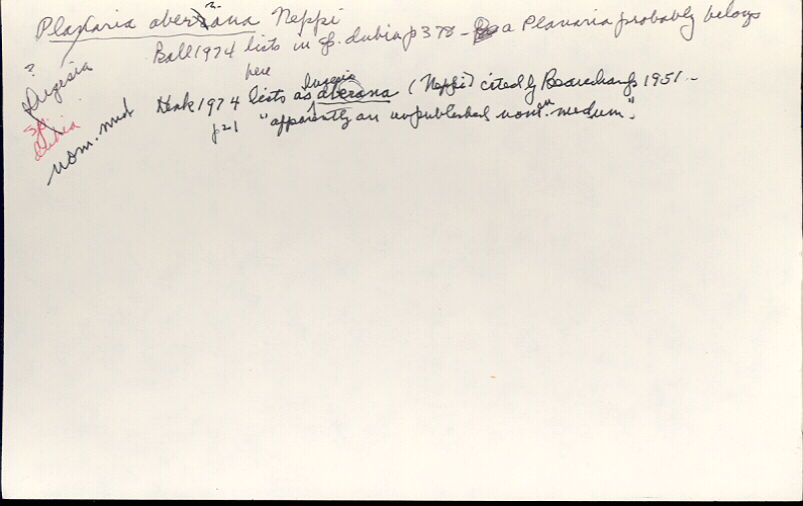 Planaria aberrana Neppi
?
Ball 1974 lists in sp. dubia p 378 - a Planaria probably belongs
here
?
Dugesia
sp.
dubia
nom. nud
1974 lists as Dugesia aberana (Neppi) cited by Beauchamp 1951 -
p21 "apparently an unpublished nom. nudum".